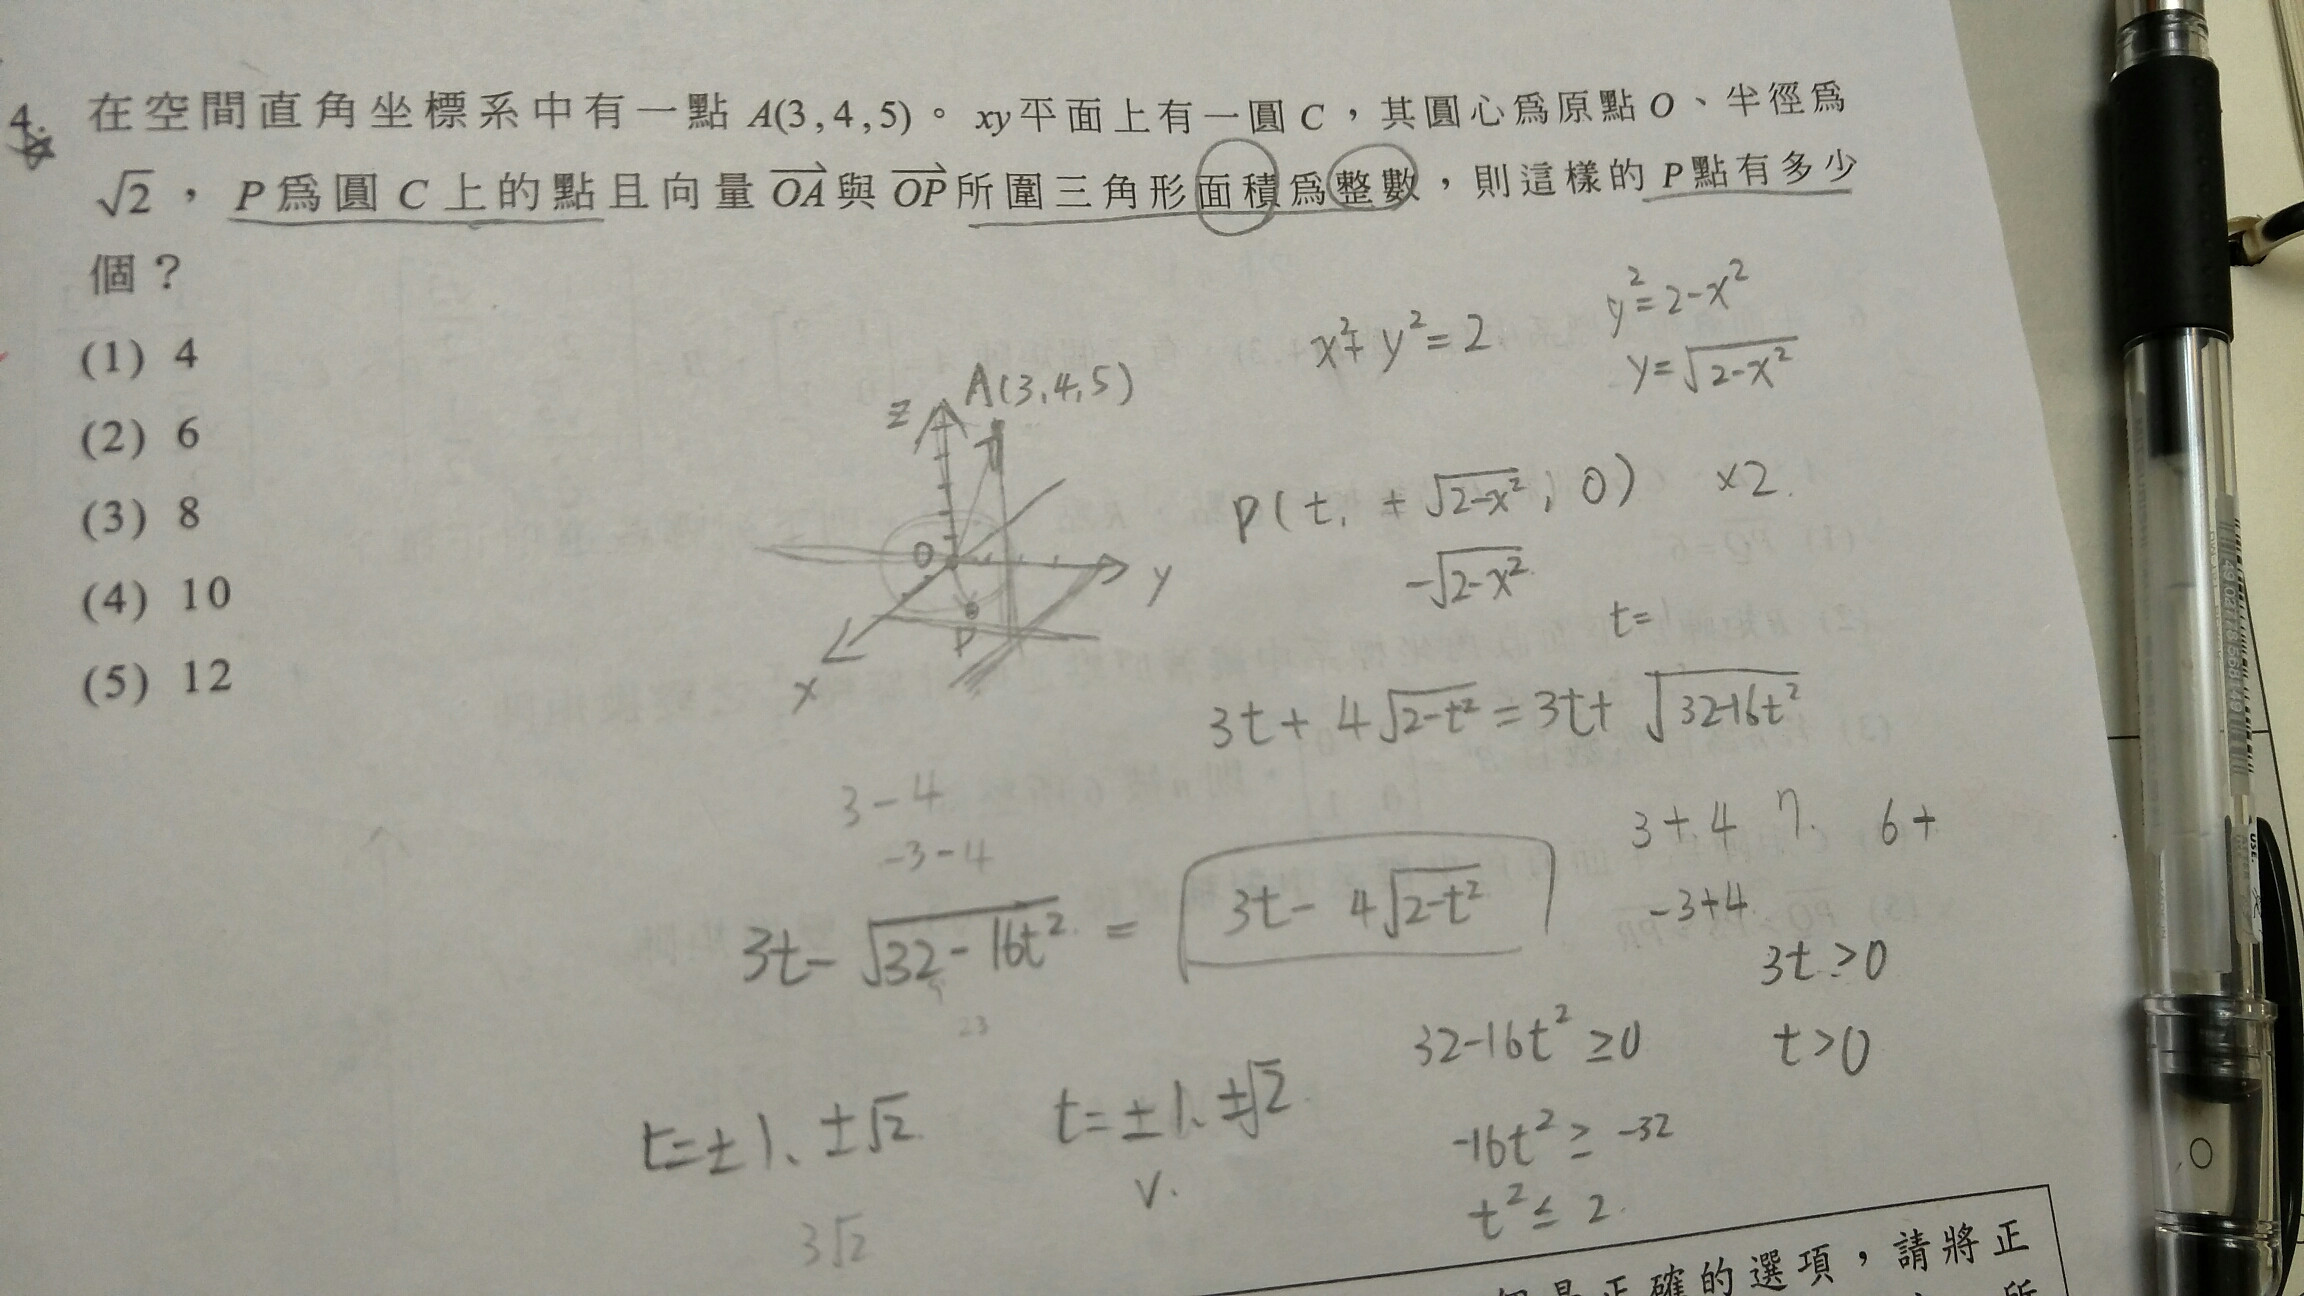 4. 在空間直角坐標系中有一點 A(3,4,5)。xy平面上有一圓 C，其圓心為原點 O、半徑為
√2，P為圓 C 上的點且向量 OA與 OP所圍三角形面積為整數，則這樣的 P點有多少
個？
(1) 4
(2) 6
(3) 8
(4) 10
(5) 12
x²+y²=2
y²=2-x²
y=√(2-x²)
A(3,4,5)
z
O
y
P
x
P(t, +√(2-x²), 0) ×2.
-√(2-x²)
t=
3t+4√(2-t²)=3t+√(32-16t²)
3-4
-3-4
3+4 7. 6+
-3+4
3t-√(32-16t²) = 3t-4√(2-t²)
3t≥0
t>0
32-16t²≥0
-16t²≥-32
t²≤2
t=±1、±√2
t=±1、±√2
v.
3√2
23
正確的選項，請將正
所